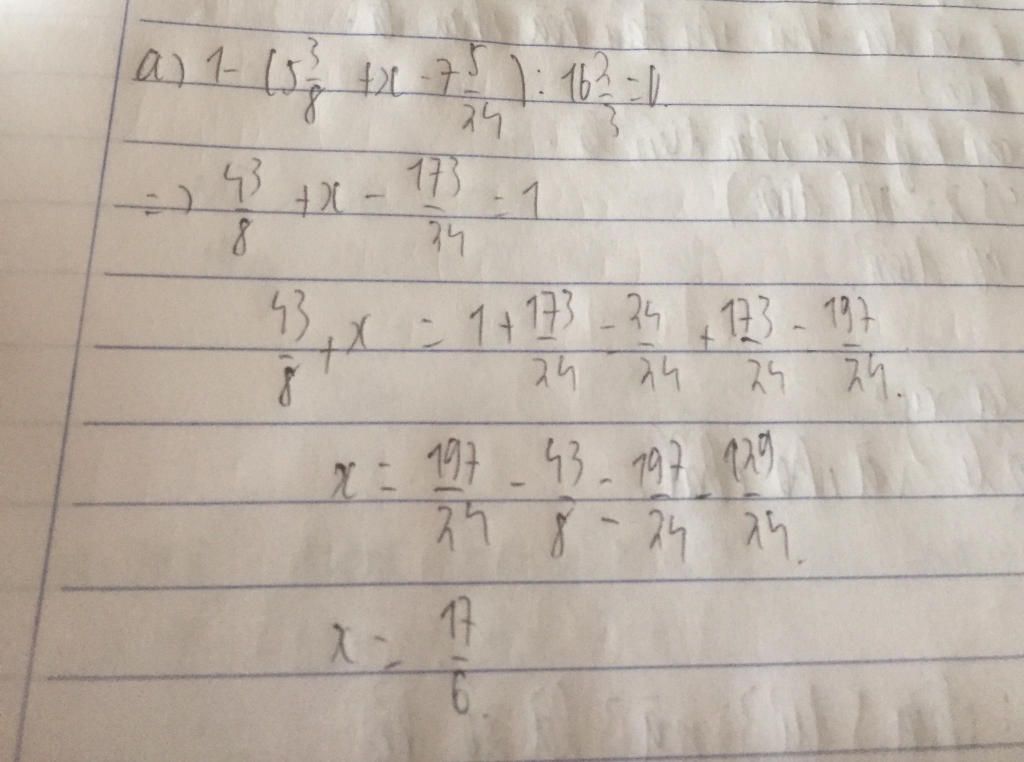 a) 1 - (5 3/8 + x - 7 5/24) : 16 2/3 = 0.
=> 43/8 + x - 173/24 = 1
43/8 + x = 1 + 173/24 = 24/24 + 173/24 = 197/24.
x = 197/24 - 43/8 = 197/24 - 129/24.
x = 17/6.